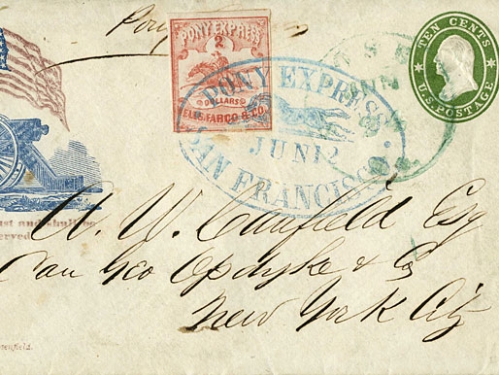 Pony
PONY EXPRESS
2
DOLLARS
WELLS FARGO & CO.
PONY EXPRESS
JUN 12
SAN FRANCISCO
TEN CENTS
U.S. POSTAGE
ust and shall be
erved.
W. W. Canfield Esq
Care Geo Opdyke & Co
New York City